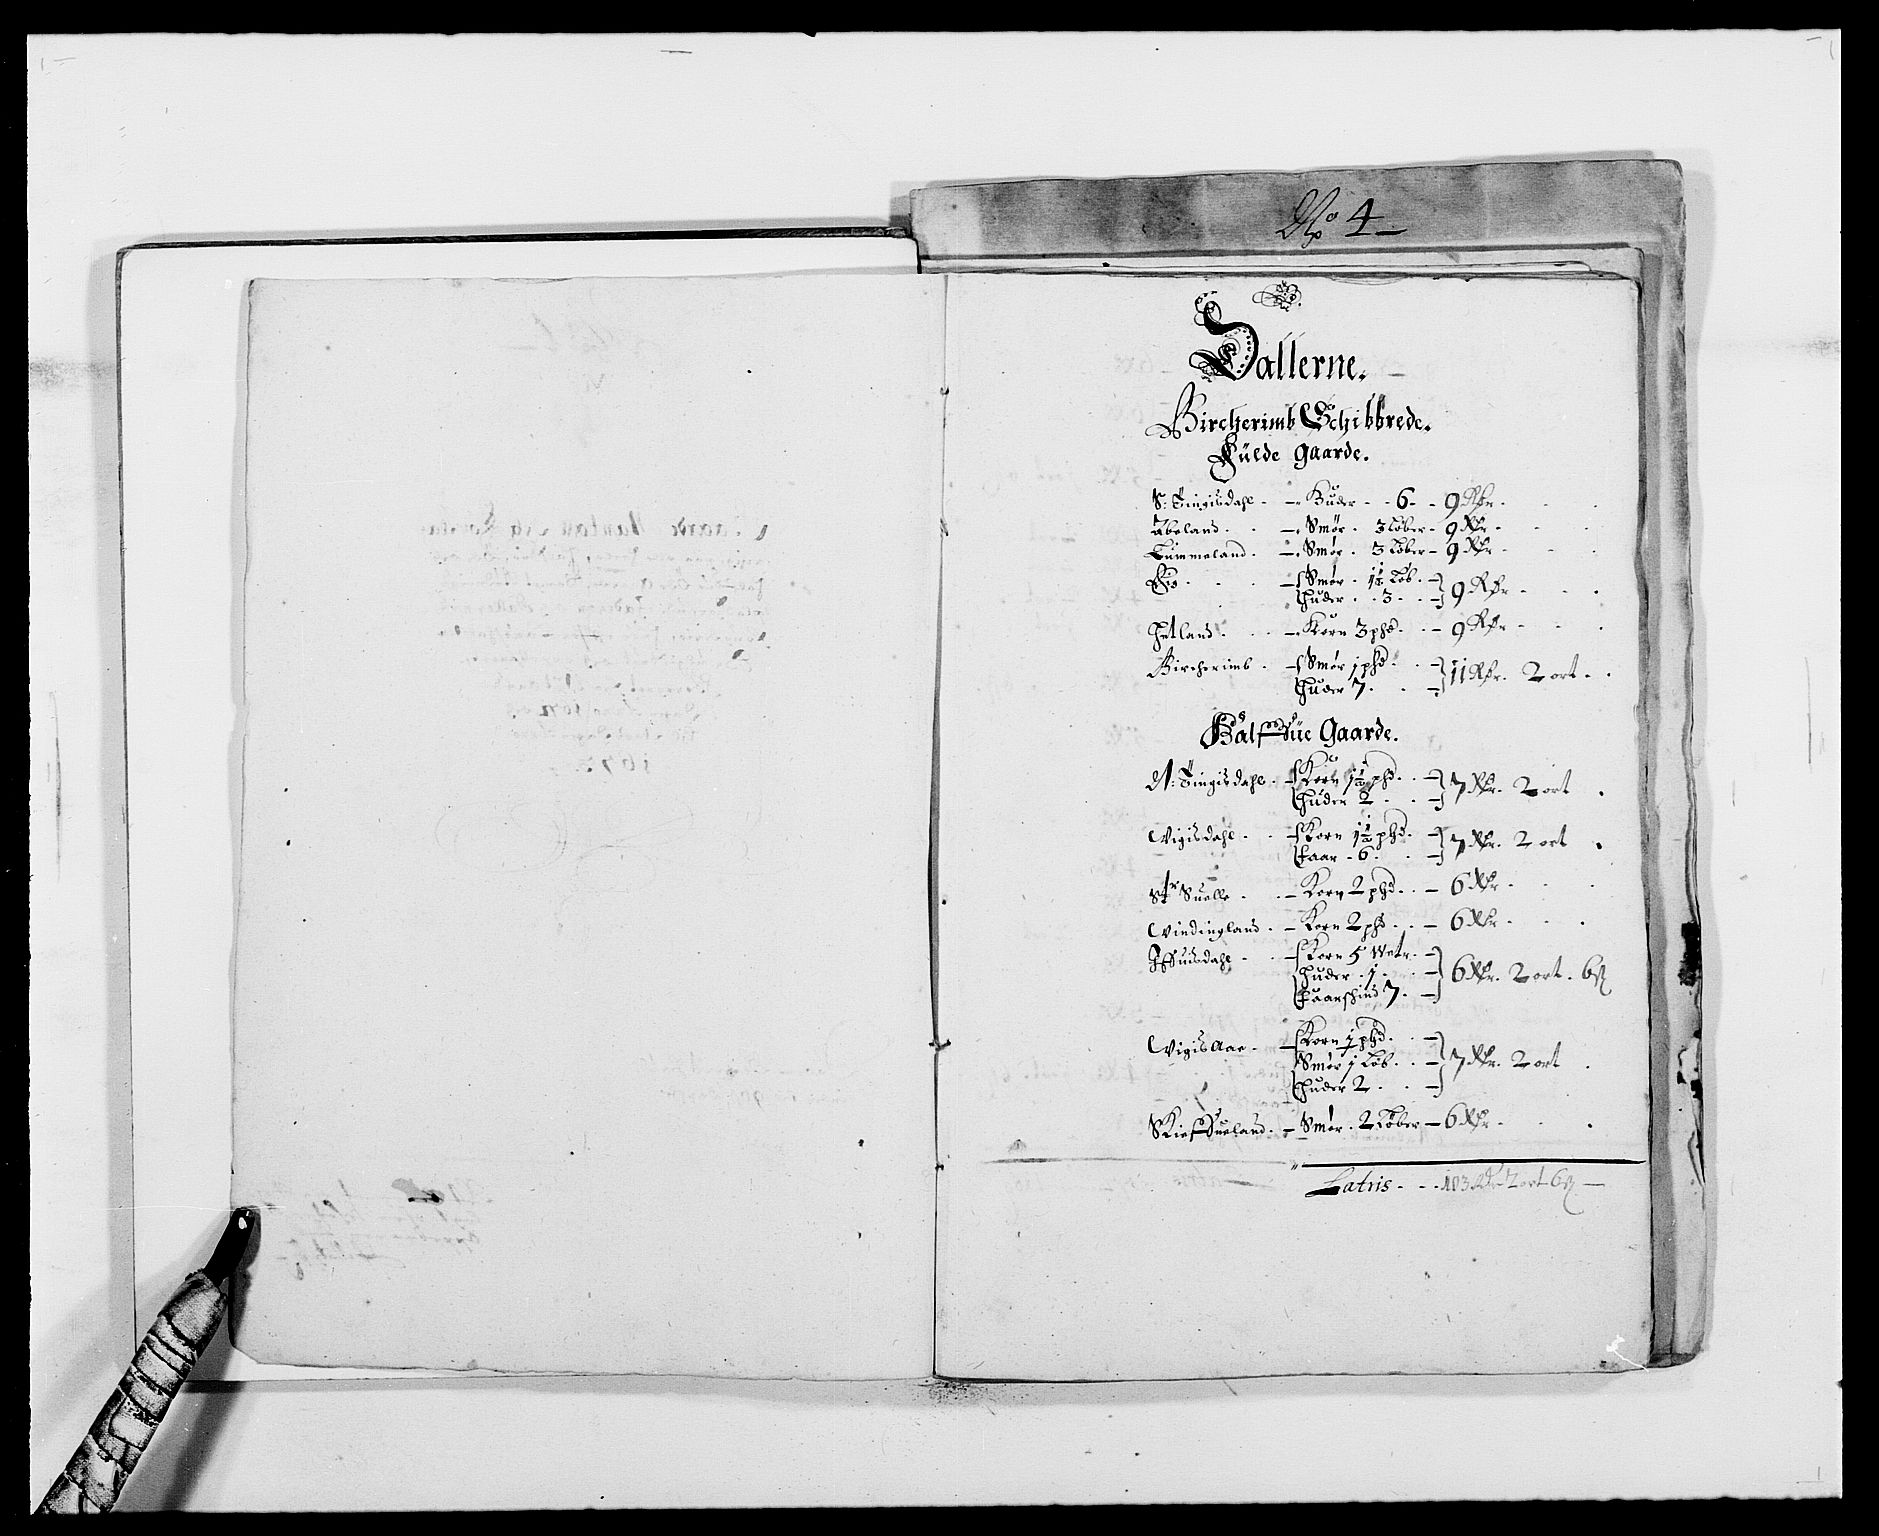 No 4
Dallerne.
Bircherimbs Schibbrede.
Fülde Gaarde.
S: Tingisdahl - Huder - 6 - 9 Rdr
Abeland - Smør 3 Løber - 9 Rdr
Lümmeland - Smør 3 Løber - 9 Rdr
Eig - Smør 1½ Løb
Huder 3 - 9 Rdr
Hetland - Korn 3 phd - 9 Rdr
Bircherimb - Smør j phd
Huder 7 - 11 Rdr 2 ort
Halfue Gaarde.
N: Tingisdahl - Korn 1½ phd
Huder 2 - 7 Rdr 2 ort
Wigisdahl - Korn 1½ phd
Faar 6 - 7 Rdr 2 ort
Str Suelle - Korn 2 phd - 6 Rdr
Windingland - Korn 2 phd - 6 Rdr
Korn 5 Wetr
Huder j
Faarskind 7 - 6 Rdr 2 ort 6 ß
Wigisaae - Korn j phd
Smør j Løb
Huder 2 - 7 Rdr 2 ort
Skieffueland - Smør 2 Løber - 6 Rdr
Latris - 103 Rdr 2 ort 6 ß